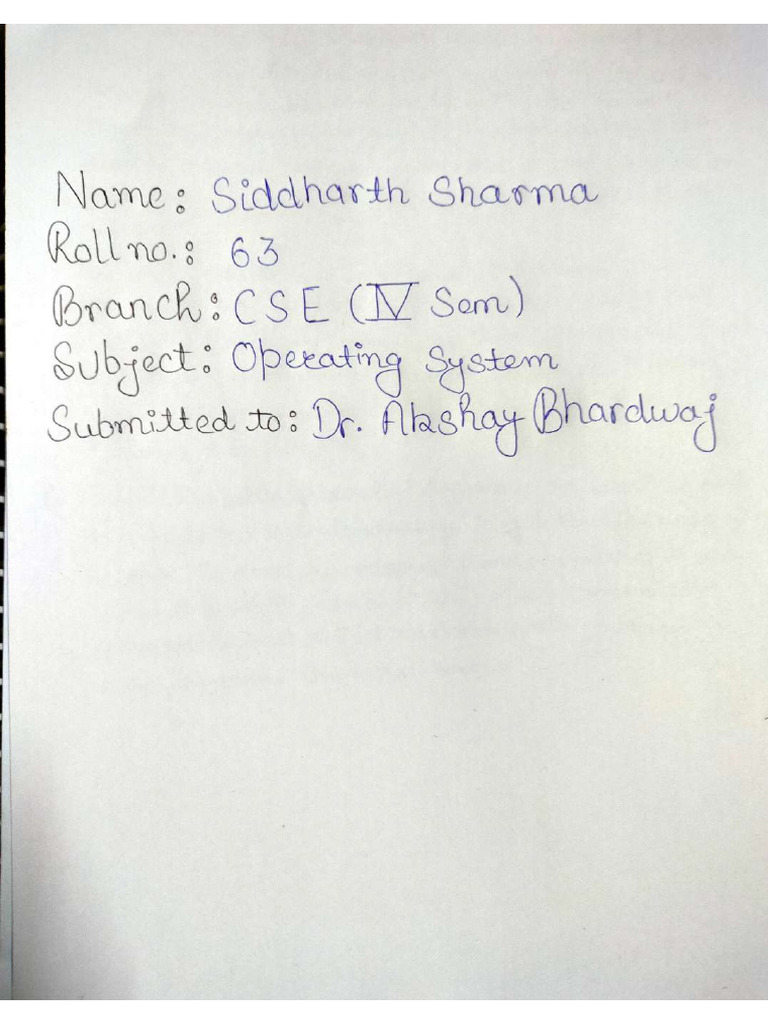 Name: Siddharth Sharma
Roll no.: 63
Branch: CSE (IV Sem)
Subject: Operating System
Submitted to: Dr. Akshay Bhardwaj